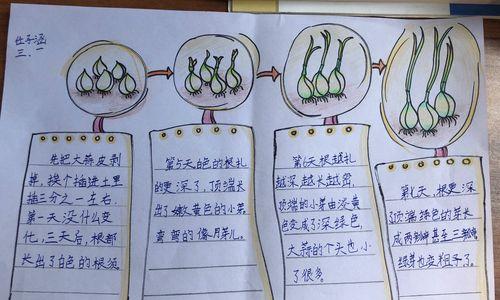 三、一
先把大蒜皮剥
掉,挨个插进土里
插三分之一左右,
第一天没什么变
化,三天后,根都
长出了白色的根须
第5天白色的根扎
的更深了,顶端长
出了嫩黄色的小芽
弯弯的像月芽儿。
第6天根越扎
越深越长越密,
顶端的小芽由淡黄
色变成了深绿色,
大蒜的个头也小
了很多。
第七天,根更深
了顶端绿色的芽长
成两种甚至三种
绿芽也变粗了。